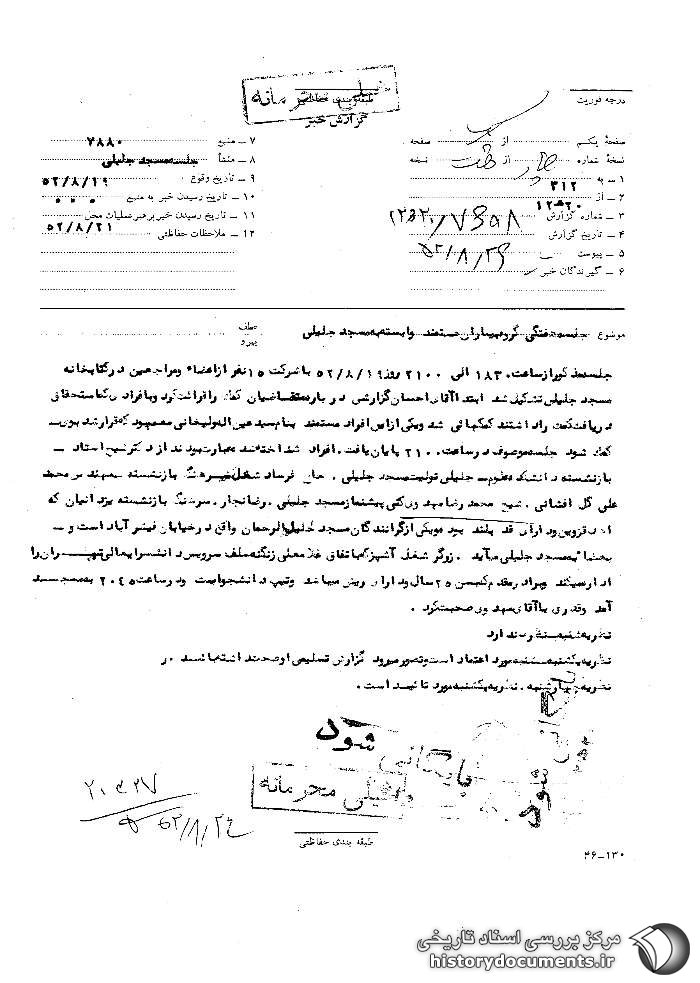 خیلی محرمانه
طبقه‌بندی حفاظتی
گزارش خبر
درجه فوریت
صفحهٔ یکم از صفحه
نسخهٔ شماره از نسخه
۱ – به ۳۱۲
۲ – از ۱۲ ه ۲۰
۳ – شماره گزارش
۴ – تاریخ گزارش
۵ – پیوست
۶ – گیرندگان خبر
۷ – منبع ۷۸۸۰
۸ – منشأ جلسه مسجد جلیلی
۹ – تاریخ وقوع ۵۲/۸/۱۹
۱۰ – تاریخ رسیدن خبر به منبع
۱۱ – تاریخ رسیدن خبر برهبر عملیات محل ۵۲/۸/۲۱
۱۲ – ملاحظات حفاظتی
موضوع جلسه هفتگی گروه بیماران مستمند وابسته به مسجد جلیلی
عطف
پیرو
جلسه مذکور از ساعت ۱۸۳۰ الی ۲۱۰۰ روز ۵۲/۸/۱۹ با شرکت ۱۵ نفر از اعضاء و مراجعین در کتابخانه
مسجد جلیلی تشکیل شد ابتدا آقای احسان گزارشی در باره متقاضیان کمک را قرائت کرد و بافرادی که استحقاق
دریافت کمک را داشتند کمکهائی شد و یکی از این افراد مستمند بنام سید عین اله ولیخانی معرفی بود که قرار شد بوی
کمک شود جلسه موصوف در ساعت ۲۱۰۰ پایان یافت. افراد شناخته شده عبارت بودند از دکتر شیخ استاد –
بازنشسته دانشکده علوم – جلیلی تولیت مسجد جلیلی . فرساد شغل فرهنگی بازنشسته مهندس محمد
علی گل افشانی . شیخ محمد رضا مهدوی کنی پیشنماز مسجد جلیلی . رضا نجار . سرهنگ بازنشسته یزدانیان که
اهل قزوین و دارای قد بلند بود و یکی از گردانندگان مسجد خلیل الرحمان واقع در خیابان قیصر آباد است و –
به مسجد جلیلی میآید . زرگر شغل آشپز که باتفاق غلامعلی زنگنه سلف سرویس دانشسرایعالی تهران را
اداره میکند برادر مقدم که سن ۲۵ سال و دارای ریش میباشد و تیپ دانشجو است و در ساعت ۲۰۴۵ به مسجد
آمد و قدری با آقای مهدوی صحبت کرد .
نظریه شنبه – نظری ندارد
نظریه یکشنبه – شنبه مورد اعتماد است و تصور میرود گزارش تسلیمی او صحت داشته باشد .
نظریه چهارشنبه . نظریه یکشنبه مورد تائید است .
بایگانی شود
خیلی محرمانه
طبقه بندی حفاظتی
۴۶–۱۳۰
مرکز بررسی اسناد تاریخی
historydocuments.ir